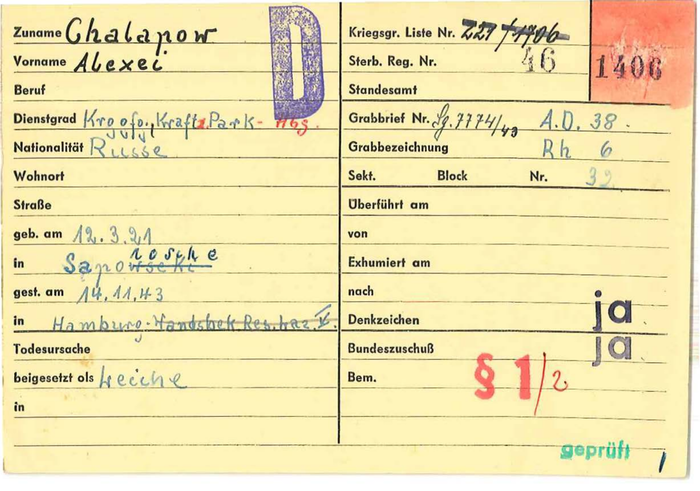 Zuname Chalapow
Vorname Alexei
Beruf
Dienstgrad Krgsfg., Krafts.Park- Abg.
Nationalität Russe
Wohnort
Straße
geb. am 12.3.21
in Sapowseki rosche
gest. am 14.11.43
in Hamburg-Wandsbek Res. Laz. V.
Todesursache
beigesetzt als Leiche
in
D
Kriegsgr. Liste Nr. 221/1706
Sterb. Reg. Nr. 46
1406
Standesamt
Grabbrief Nr. Sg.7774/43 A.D. 38.
Grabbezeichnung Rh 6
Sekt. Block Nr. 32
Überführt am
von
Exhumiert am
nach
Denkzeichen ja
Bundeszuschuß ja
Bem. § 1/2
geprüft